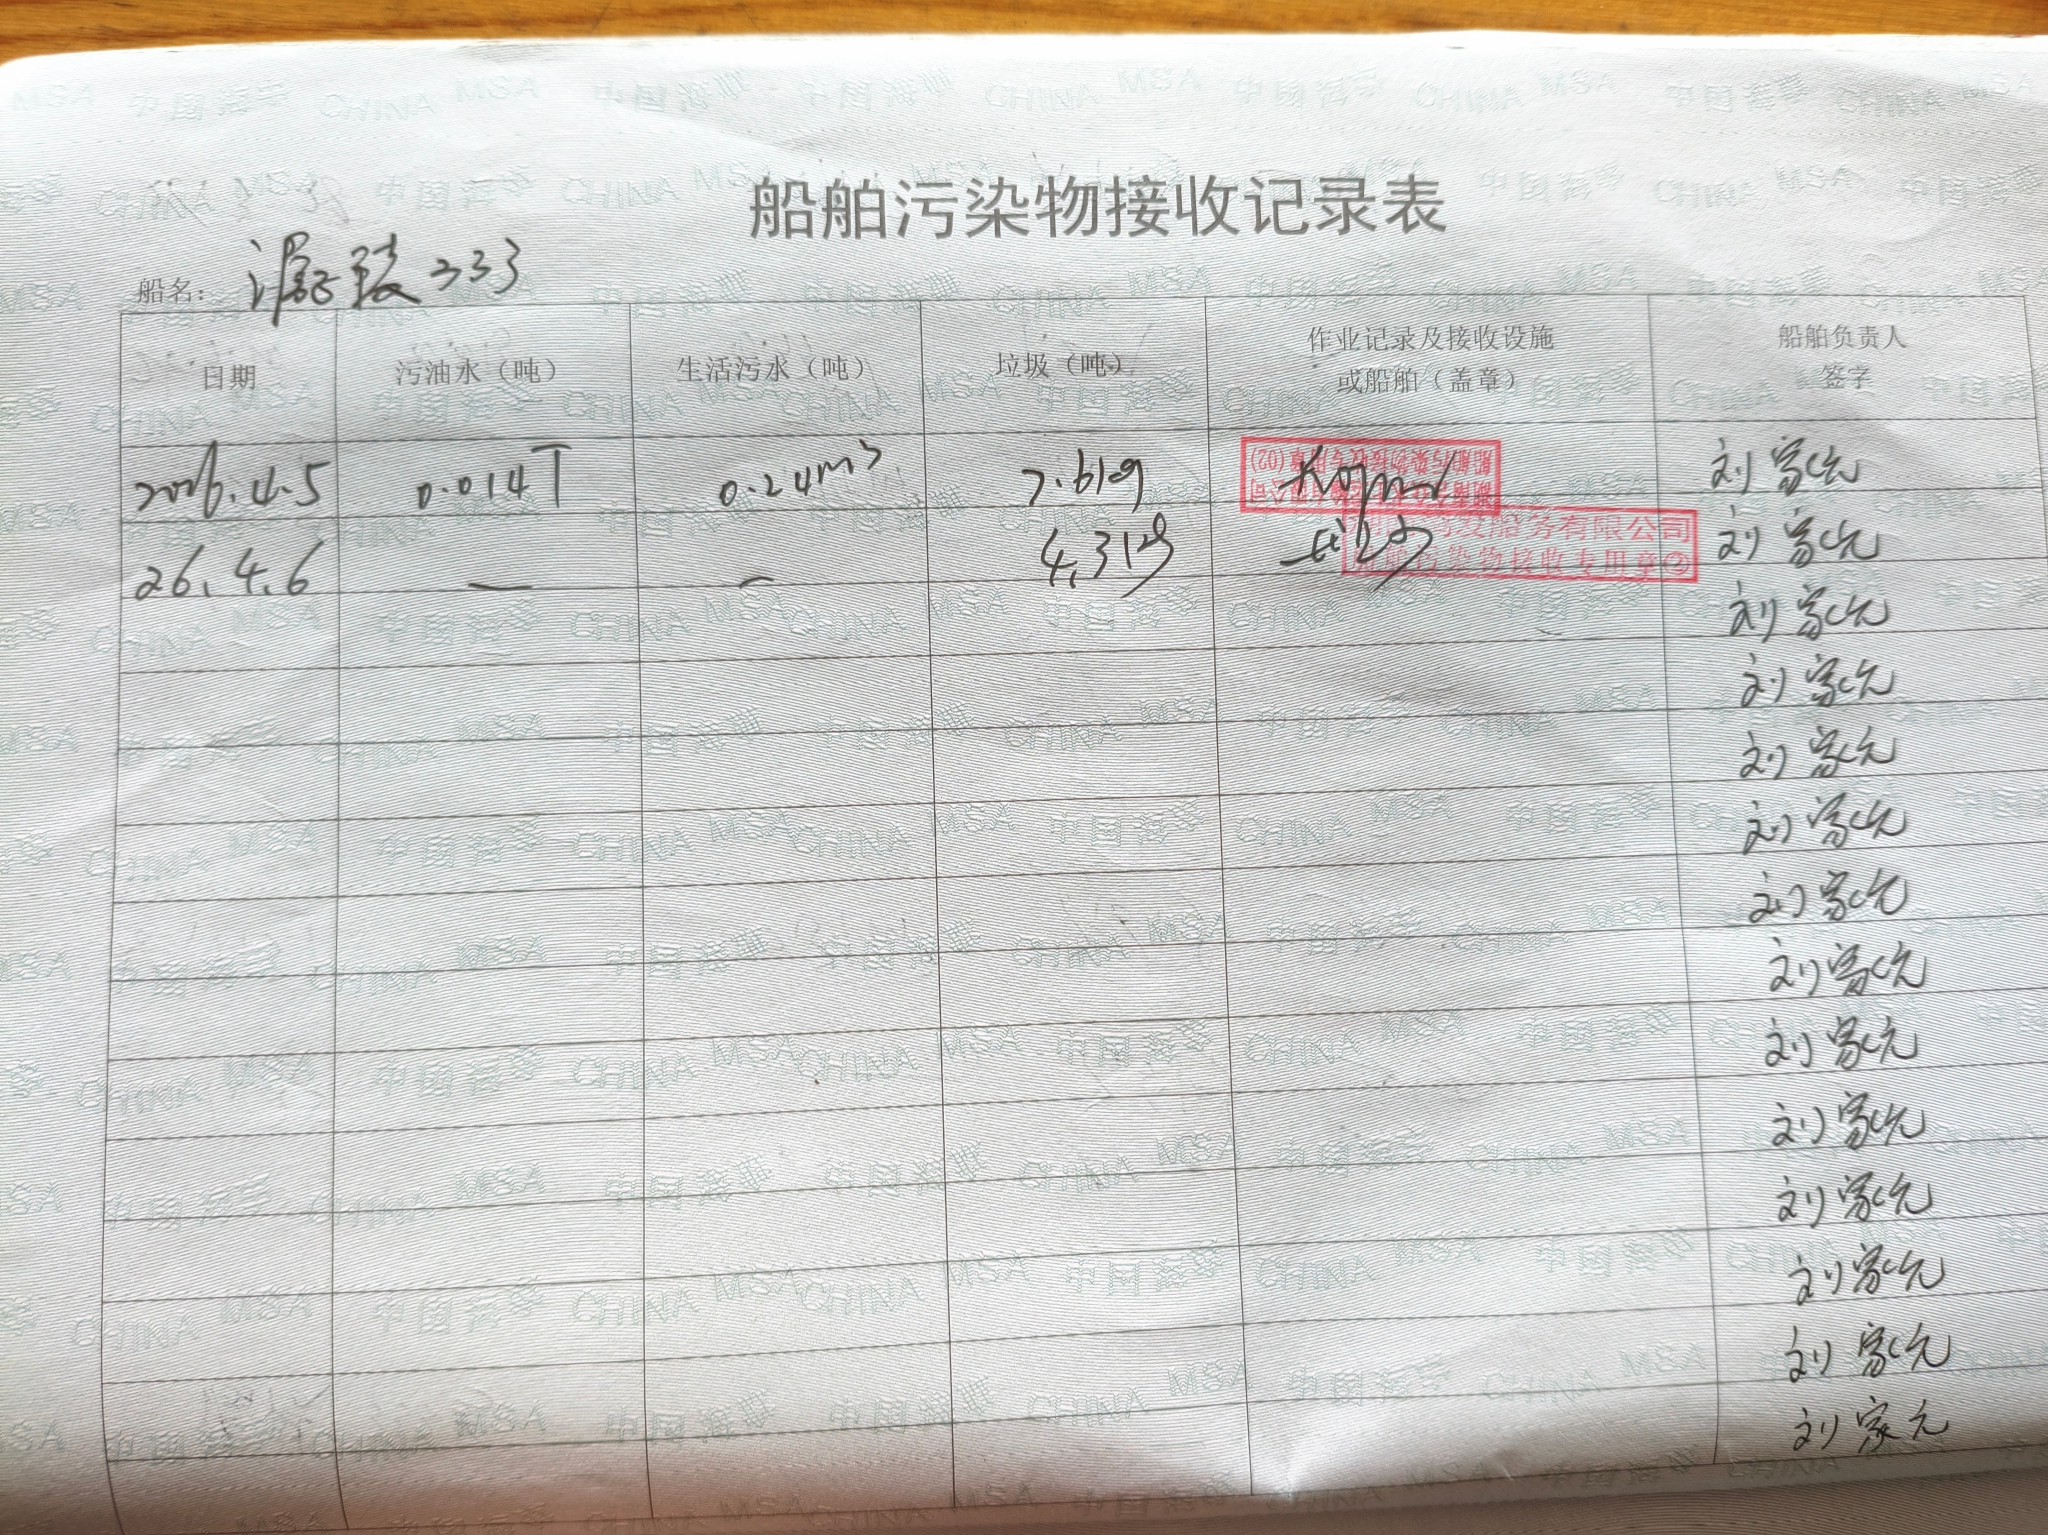 船舶污染物接收记录表
船名： 333
日期 污油水（吨） 生活污水（吨） 垃圾（吨） 作业记录及接收设施或船舶（盖章） 船舶负责人签字
2026.4.5 0.014T 0.24m3 7.61kg 刘家元
26.4.6 — — 4.31kg 发船务有限公司 船舶污染物接收专用章② 刘家元
刘家元
刘家元
刘家元
刘家元
刘家元
刘家元
刘家元
刘家元
刘家元
刘家元
刘家元
刘家元
中国海事 CHINA MSA